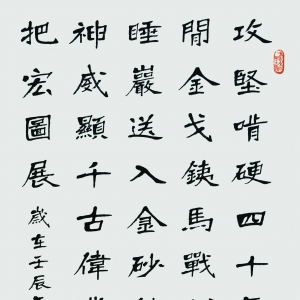 攻堅啃硬四十年
閒金戈銕馬戰
睡巖送入金砂
神威顯千古偉業
把宏圖展
歲在壬辰